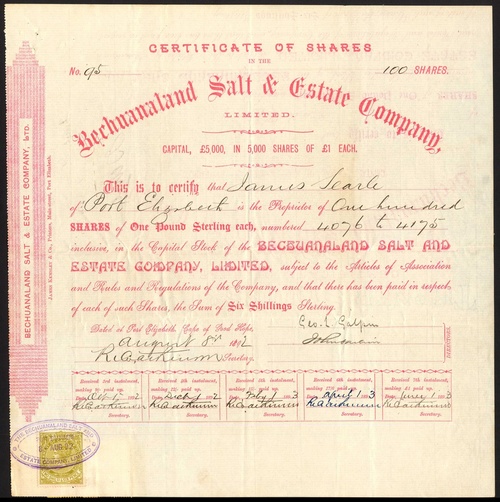 CERTIFICATE OF SHARES
IN THE
No. 95 100 SHARES.
Bechuanaland Salt & Estate Company,
LIMITED.
CAPITAL, £5,000, IN 5,000 SHARES OF £1 EACH.
This is to certify that James Searle
of Port Elizabeth is the Proprietor of One hundred
SHARES of One Pound Sterling each, numbered 4076 to 4175
inclusive, in the Capital Stock of the BECHUANALAND SALT AND
ESTATE COMPANY, LIMITED, subject to the Articles of Association
and Rules and Regulations of the Company, and that there has been paid in respect
of each of such Shares, the Sum of Six Shillings Sterling.
Dated at Port Elizabeth, Cape of Good Hope,
August 8th 1892
Secretary.
Geo. Galpin
DIRECTORS.
Received 3rd instalment, making up Received 4th instalment, making up Received 5th instalment, making up Received 6th instalment, making up Received 7th instalment, making up
Oct 1 2 Decr 1 2 Feby 1 3 April 1 3 June 1 3
Secretary. Secretary. Secretary. Secretary. Secretary.
BECHUANALAND SALT & ESTATE COMPANY, LTD.
James Kemsley & Co., Printers, Main-street, Port Elizabeth.
THE BECHUANALAND SALT AND
ESTATE COMPANY LIMITED